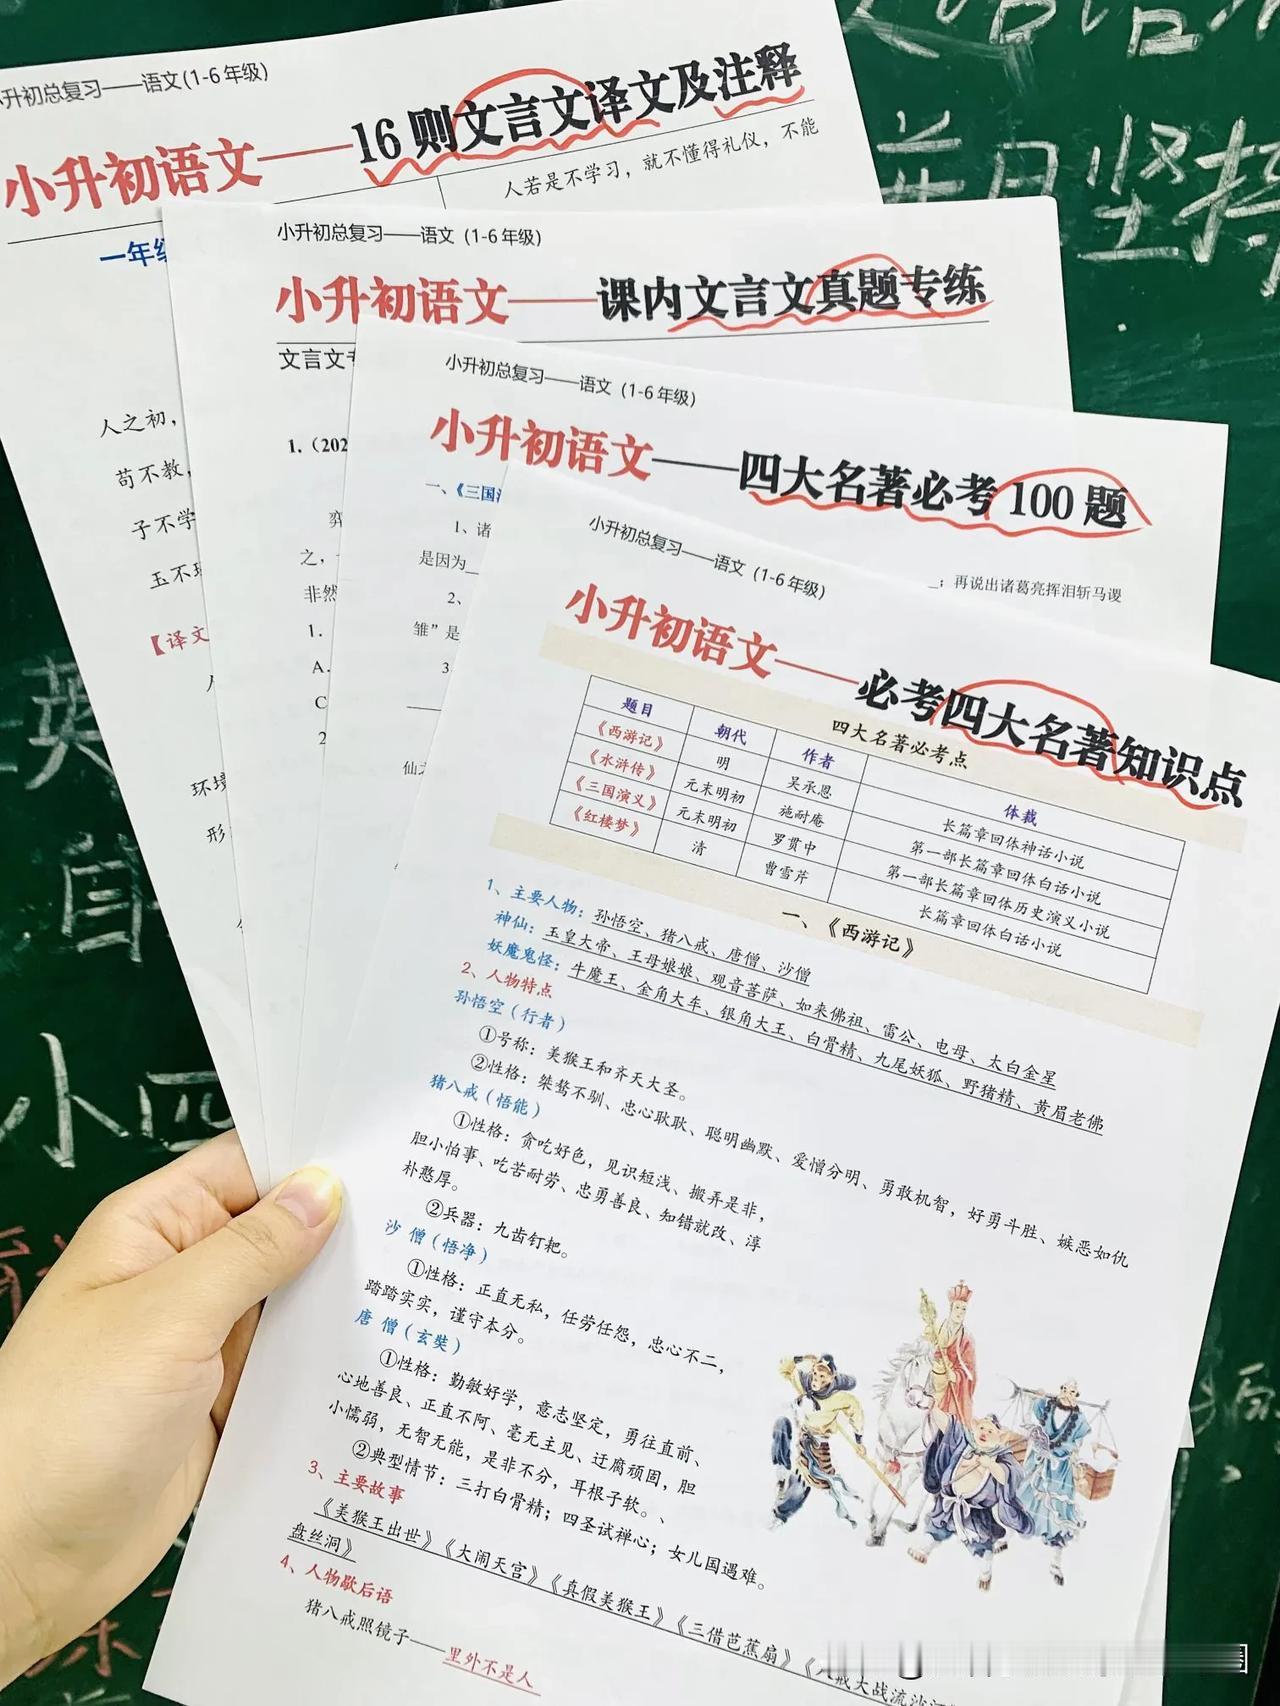 小升初总复习——语文(1-6年级)
小升初语文——16则文言文译文及注释
人若是不学习，就不懂得礼仪，不能
一年级
人之初，
苟不教，
子不学
玉不琢
【译文
环境
形
小升初总复习——语文（1-6年级）
小升初语文——课内文言文真题专练
文言文专
1.（202
弈
之，
非然
1.
A.
C
2
小升初总复习——语文（1-6年级）
小升初语文——四大名著必考100题
一、《三国演
1、诸
是因为
；再说出诸葛亮挥泪斩马谡
2、
雏”是
3
仙
小升初总复习——语文（1-6年级）
小升初语文——必考四大名著知识点
四大名著必考点
题目 朝代 作者 体裁
《西游记》 明 吴承恩 长篇章回体神话小说
《水浒传》 元末明初 施耐庵 第一部长篇章回体白话小说
《三国演义》 元末明初 罗贯中 第一部长篇章回体历史演义小说
《红楼梦》 清 曹雪芹 长篇章回体白话小说
一、《西游记》
1、主要人物：孙悟空、猪八戒、唐僧、沙僧
神仙：玉皇大帝、王母娘娘、观音菩萨、如来佛祖、雷公、电母、太白金星
妖魔鬼怪：牛魔王、金角大车、银角大王、白骨精、九尾妖狐、野猪精、黄眉老佛
2、人物特点
孙悟空（行者）
①号称：美猴王和齐天大圣。
②性格：桀骜不驯、忠心耿耿、聪明幽默、爱憎分明、勇敢机智，好勇斗胜、嫉恶如仇
猪八戒（悟能）
①性格：贪吃好色，见识短浅、搬弄是非，
胆小怕事、吃苦耐劳、忠勇善良、知错就改、淳
朴憨厚。
②兵器：九齿钉耙。
沙 僧（悟净）
①性格：正直无私，任劳任怨，忠心不二，
踏踏实实，谨守本分。
唐 僧（玄奘）
①性格：勤敏好学，意志坚定，勇往直前、
心地善良、正直不阿、毫无主见、迂腐顽固，胆
小懦弱，无智无能，是非不分，耳根子软。、
②典型情节：三打白骨精；四圣试禅心；女儿国遇难。
3、主要故事
《美猴王出世》《大闹天宫》《真假美猴王》《三借芭蕉扇》《八戒大战流沙河
盘丝洞》
4、人物歇后语
猪八戒照镜子——里外不是人
坚持
英
自
小四